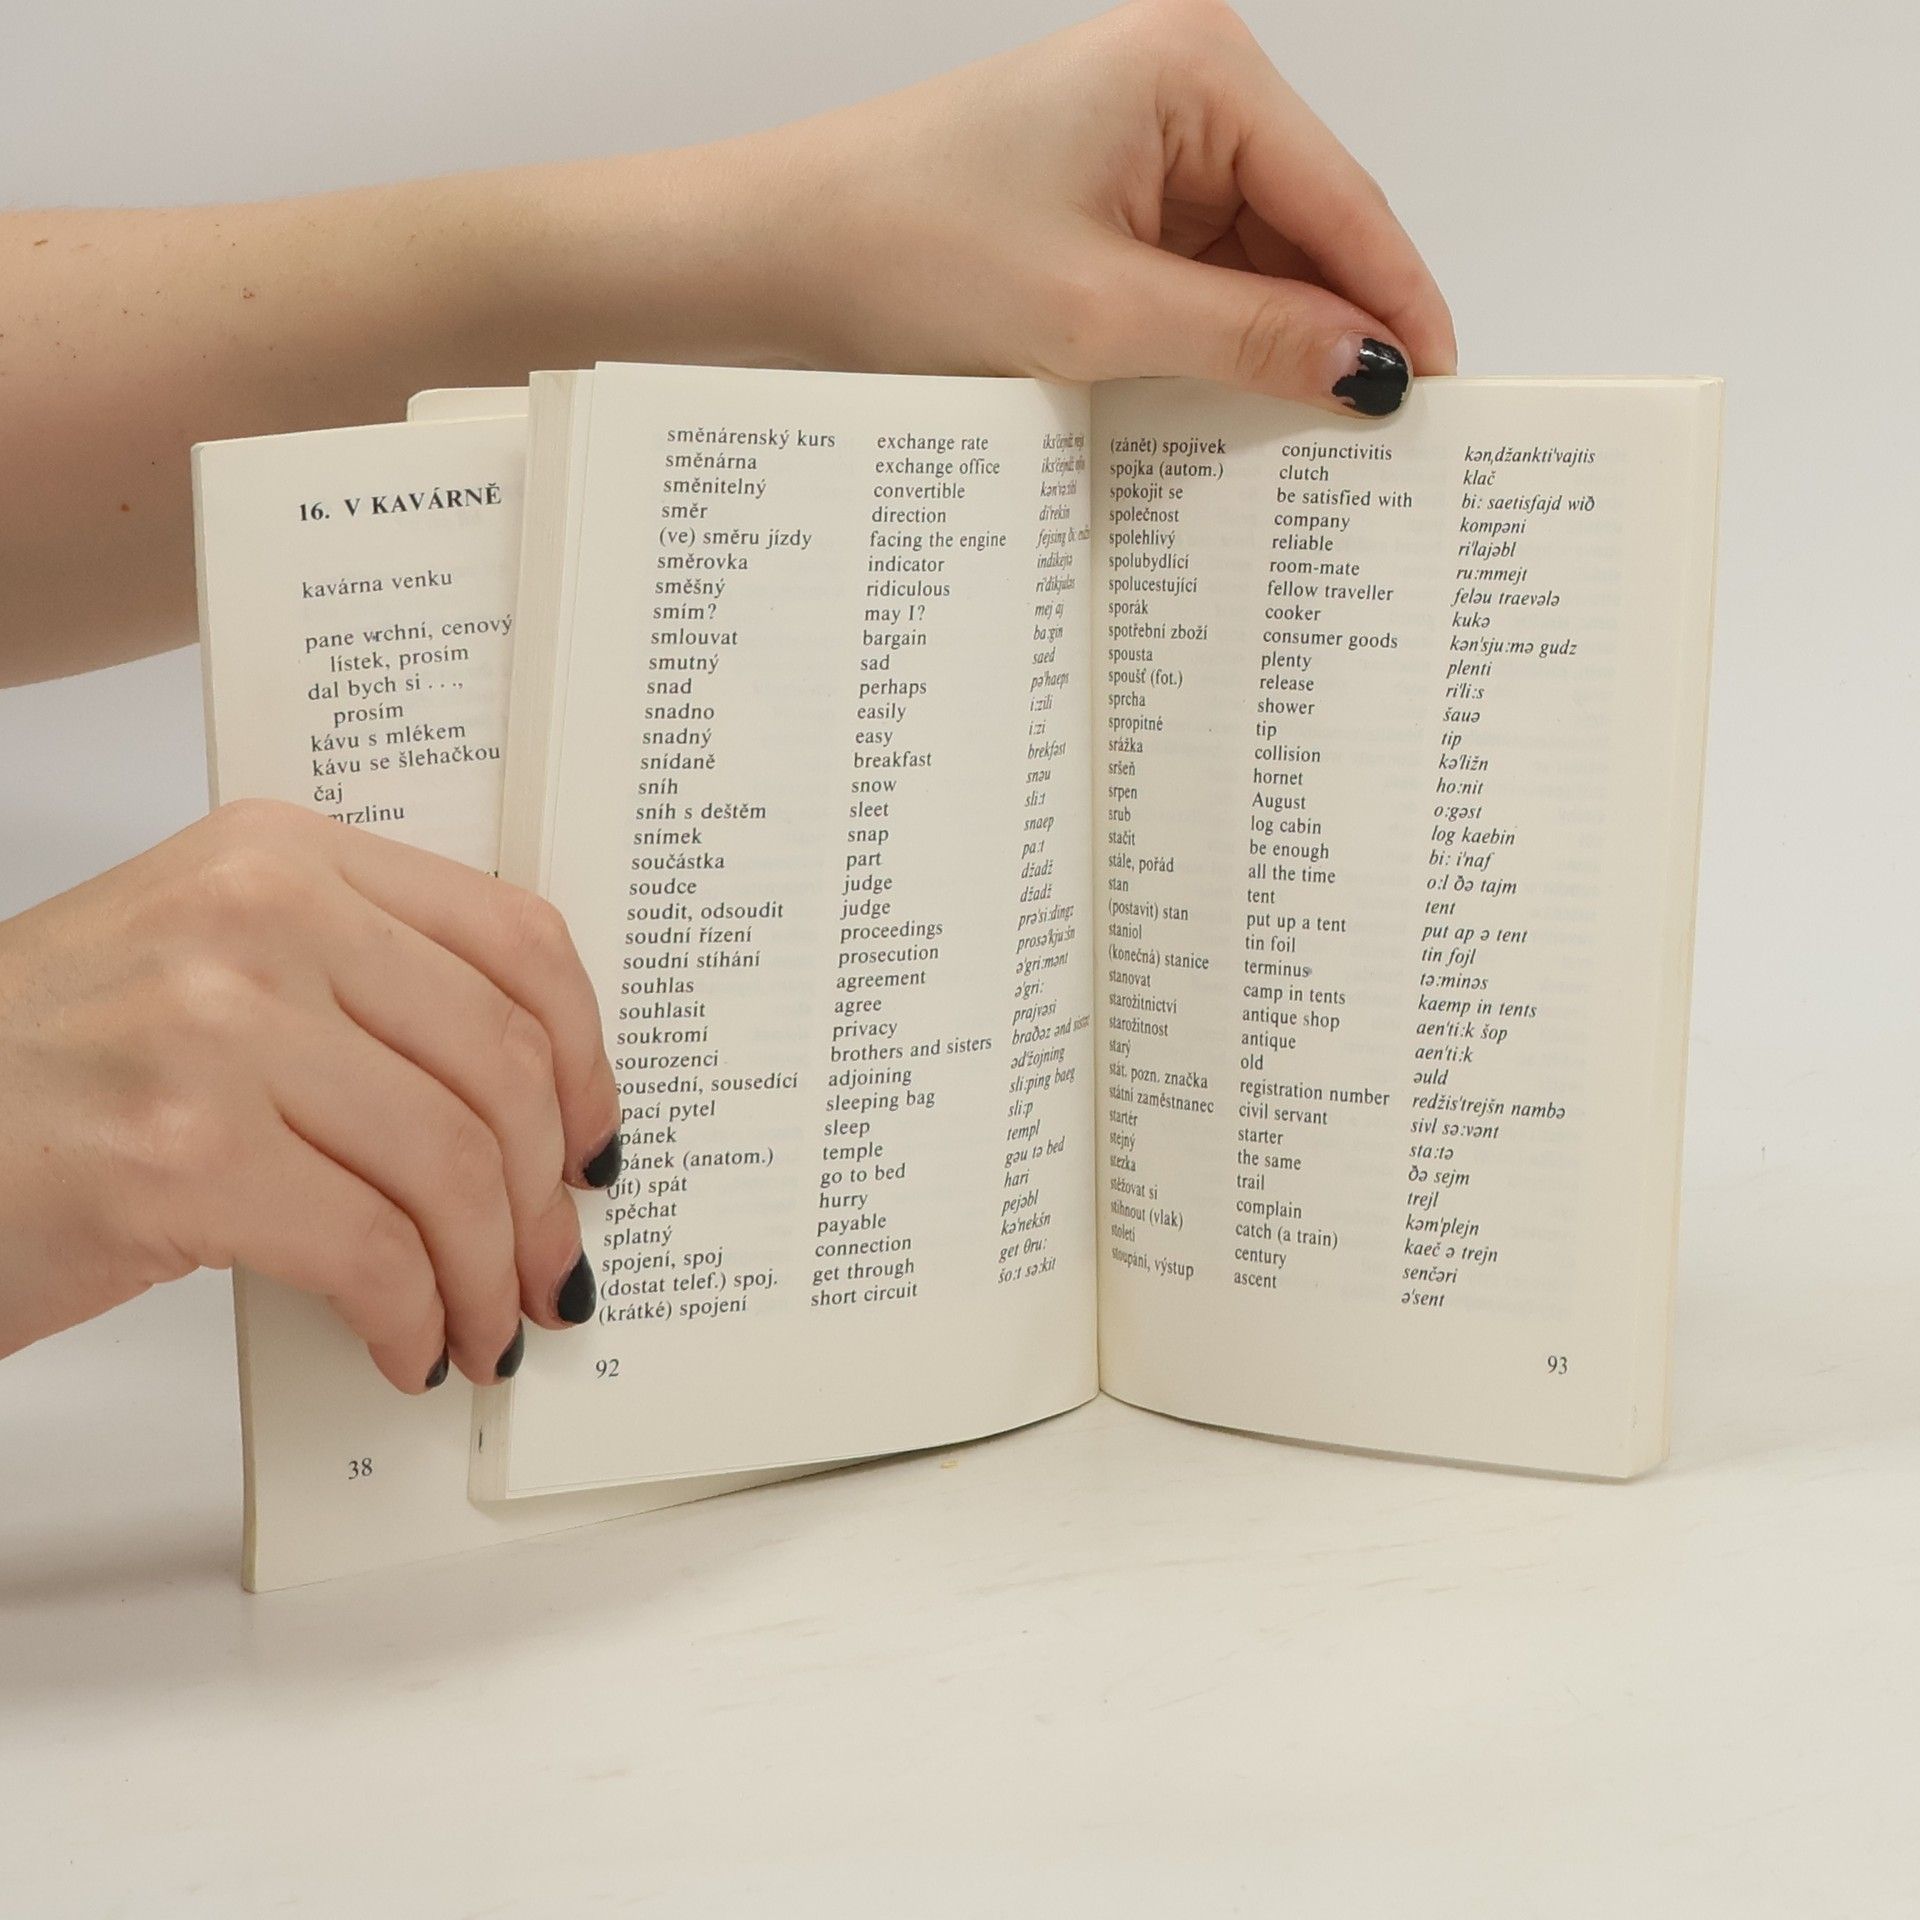 16. V KAVÁRNĚ
kavárna venku
pane vrchní, cenový
lístek, prosím
dal bych si . . .,
prosím
kávu s mlékem
kávu se šlehačkou
čaj
38
směnárenský kurs exchange rate
směnárna exchange office
směnitelný convertible
směr direction
(ve) směru jízdy facing the engine
směrovka indicator
směšný ridiculous ri'dikjuləs
smím? may I? mej aj
smlouvat bargain ba:gin
smutný sad saed
snad perhaps pə'haeps
snadno easily i:zili
snadný easy i:zi
snídaně breakfast brekfəst
sníh snow snəu
sníh s deštěm sleet sli:t
snímek snap snaep
součástka part pa:t
soudce judge džadž
soudit, odsoudit judge džadž
soudní řízení proceedings prə'si:dingz
soudní stíhání prosecution prosə'kju:šn
souhlas agreement ə'gri:mənt
souhlasit agree ə'gri:
soukromí privacy prajvəsi
sourozenci brothers and sisters
sousední, sousedící adjoining əd'žojning
pací pytel sleeping bag sli:ping baeg
pánek sleep sli:p
pánek (anatom.) temple templ
(jít) spát go to bed gəu tə bed
spěchat hurry hari
splatný payable pejəbl
spojení, spoj connection kə'nekšn
(dostat telef.) spoj. get through get θru:
(krátké) spojení short circuit šo:t sə:kit
92
(zánět) spojivek conjunctivitis kən,džankti'vajtis
spojka (autom.) clutch klač
spokojit se be satisfied with bi: saetisfajd wið
společnost company kompəni
spolehlivý reliable ri'lajəbl
spolubydlící room-mate ru:mmejt
spolucestující fellow traveller feləu traevələ
sporák cooker kukə
spotřební zboží consumer goods kən'sju:mə gudz
spousta plenty plenti
spoušť (fot.) release ri'li:s
sprcha shower šauə
spropitné tip tip
srážka collision kə'ližn
sršeň hornet ho:nit
srpen August o:gəst
srub log cabin log kaebin
stačit be enough bi: i'naf
stále, pořád all the time o:l ðə tajm
stan tent tent
(postavit) stan put up a tent put ap ə tent
staniol tin foil tin fojl
(konečná) stanice terminus tə:minəs
stanovat camp in tents kaemp in tents
starožitnictví antique shop aen'ti:k šop
starožitnost antique aen'ti:k
starý old əuld
stát. pozn. značka registration number redžis'trejšn nambə
státní zaměstnanec civil servant sivl sə:vənt
startér starter sta:tə
stejný the same ðə sejm
stezka trail trejl
stěžovat si complain kəm'plejn
stihnout (vlak) catch (a train) kaeč ə trejn
století century senčəri
stoupání, výstup ascent ə'sent
93